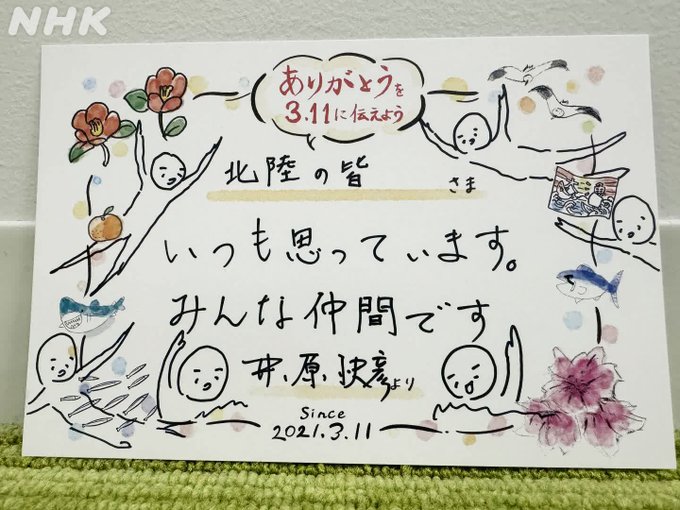 NHK
ありがとうを
3.11に伝えよう
北陸の皆 さま
いつも思っています。
みんな仲間です
井原快彦より
Since
2021.3.11